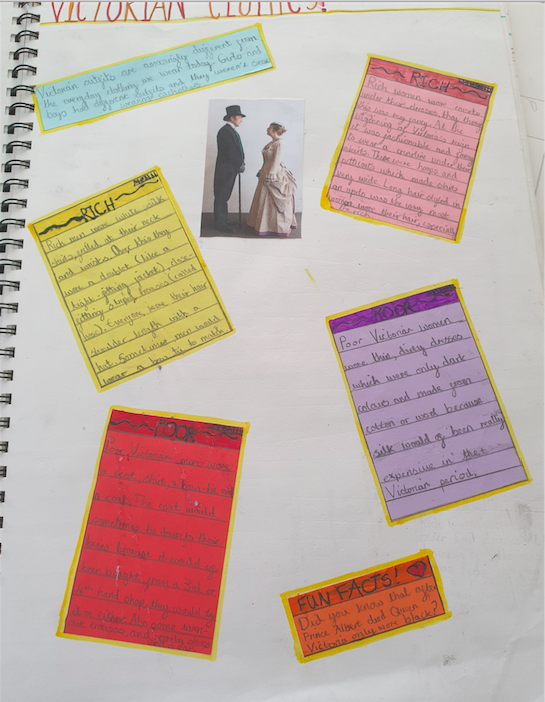 VICTORIAN CLOTHES!
Victorian outfits are amazingly different from
the everyday clothing we wear today. Girls and
boys had different outfits and they weren't even
RICH
Rich women wore corsets
under their dresses
was very fancy. At the
beginning of Victoria's reign
it was fashionable and fancy
to wear a crinoline under the
skirts. These were hoops and
petticoats which made skirts
very wide. Long hair styled in
an updo was the very most
women wore their hair, especially
rich
RICH
MEN
Rich men wore white silk
shirts, frilled at their neck
and wrists. Over this they
wore a doublet (like a
tight-fitting jacket), close-
fitting striped trouses (called
hose). Everyone wore their hair
shoulder length with a
hat. Sometimes men would
wear a bow tie to match
POOR
Poor Victorian women
wore thin, dirty dresses
which were only dark
colours and made from
cotton or wool because
silk would of been really
expensive in the
Victorian period.
POOR
Poor Victorian men wore
a vest, shirt, a bow-tie and
a coat. The coat would
sometimes be down to their
knees because it would of
been bought from a 3rd or
4th hand shop, they would be
old or either. Also some
FUN FACTS!
Did you know that after
Prince Albert died Queen
Victoria only wore black?